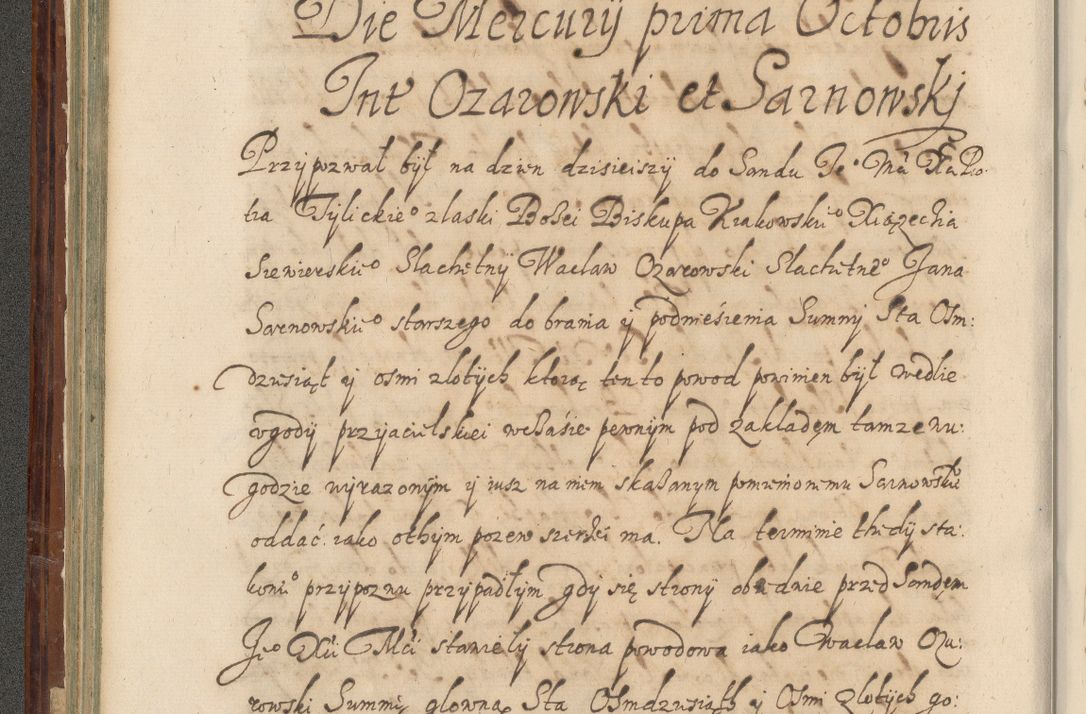 Die Mercurÿ prima Octobris
Int Ozarowski et Sarnowskj
Przÿpozwał bÿł na dzien dzisieiszÿ do Sandu Je° Mci Xa Pio
tra Tÿlickie° z laski Bożei Biskupa Krakowskie° Xiążęcia
Siewierskie° Slachetnÿ Wacław Ozarowski Slachetne° Jana
Sarnowskie° starszego do brania ÿ podniesienia Summÿ Sta Osm:
dziesiąt ÿ osmi zlotÿch ktorą ten to powod powinien bÿł wedlie
vgodÿ przÿiacielskiei wczasie pewnÿm pod zakładęm tamze nu:
godzie wÿrazonÿm ÿ iusz na niem skazanÿm pomienionemu Sarnowskie
oddać. iako othÿm pozew szerzei ma. Na terminie thedÿ sta:
koni° przÿpoznu przÿpadłÿm, gdÿ się stronÿ obiednie przed Sandęm
Je° Xci Mci stawiełÿ strona powodowa iako Wacław Oza:
rowski Summę glowną Sta Osmdziesiąth ÿ Osmi Zlotÿch go: